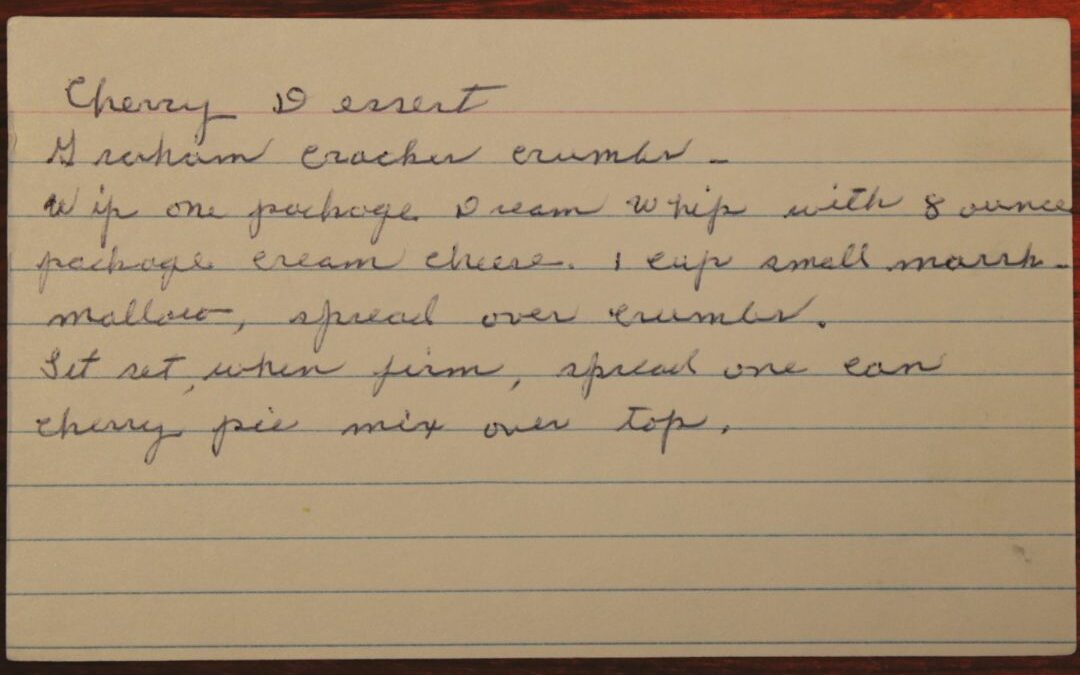 Cherry Dessert
Graham cracker crumbs -
Wip one package Dream Whip with 8 ounce
package cream cheese. 1 cup small marsh-
mallow, spread over crumbs.
Let set, when firm, spread one can
cherry pie mix over top.